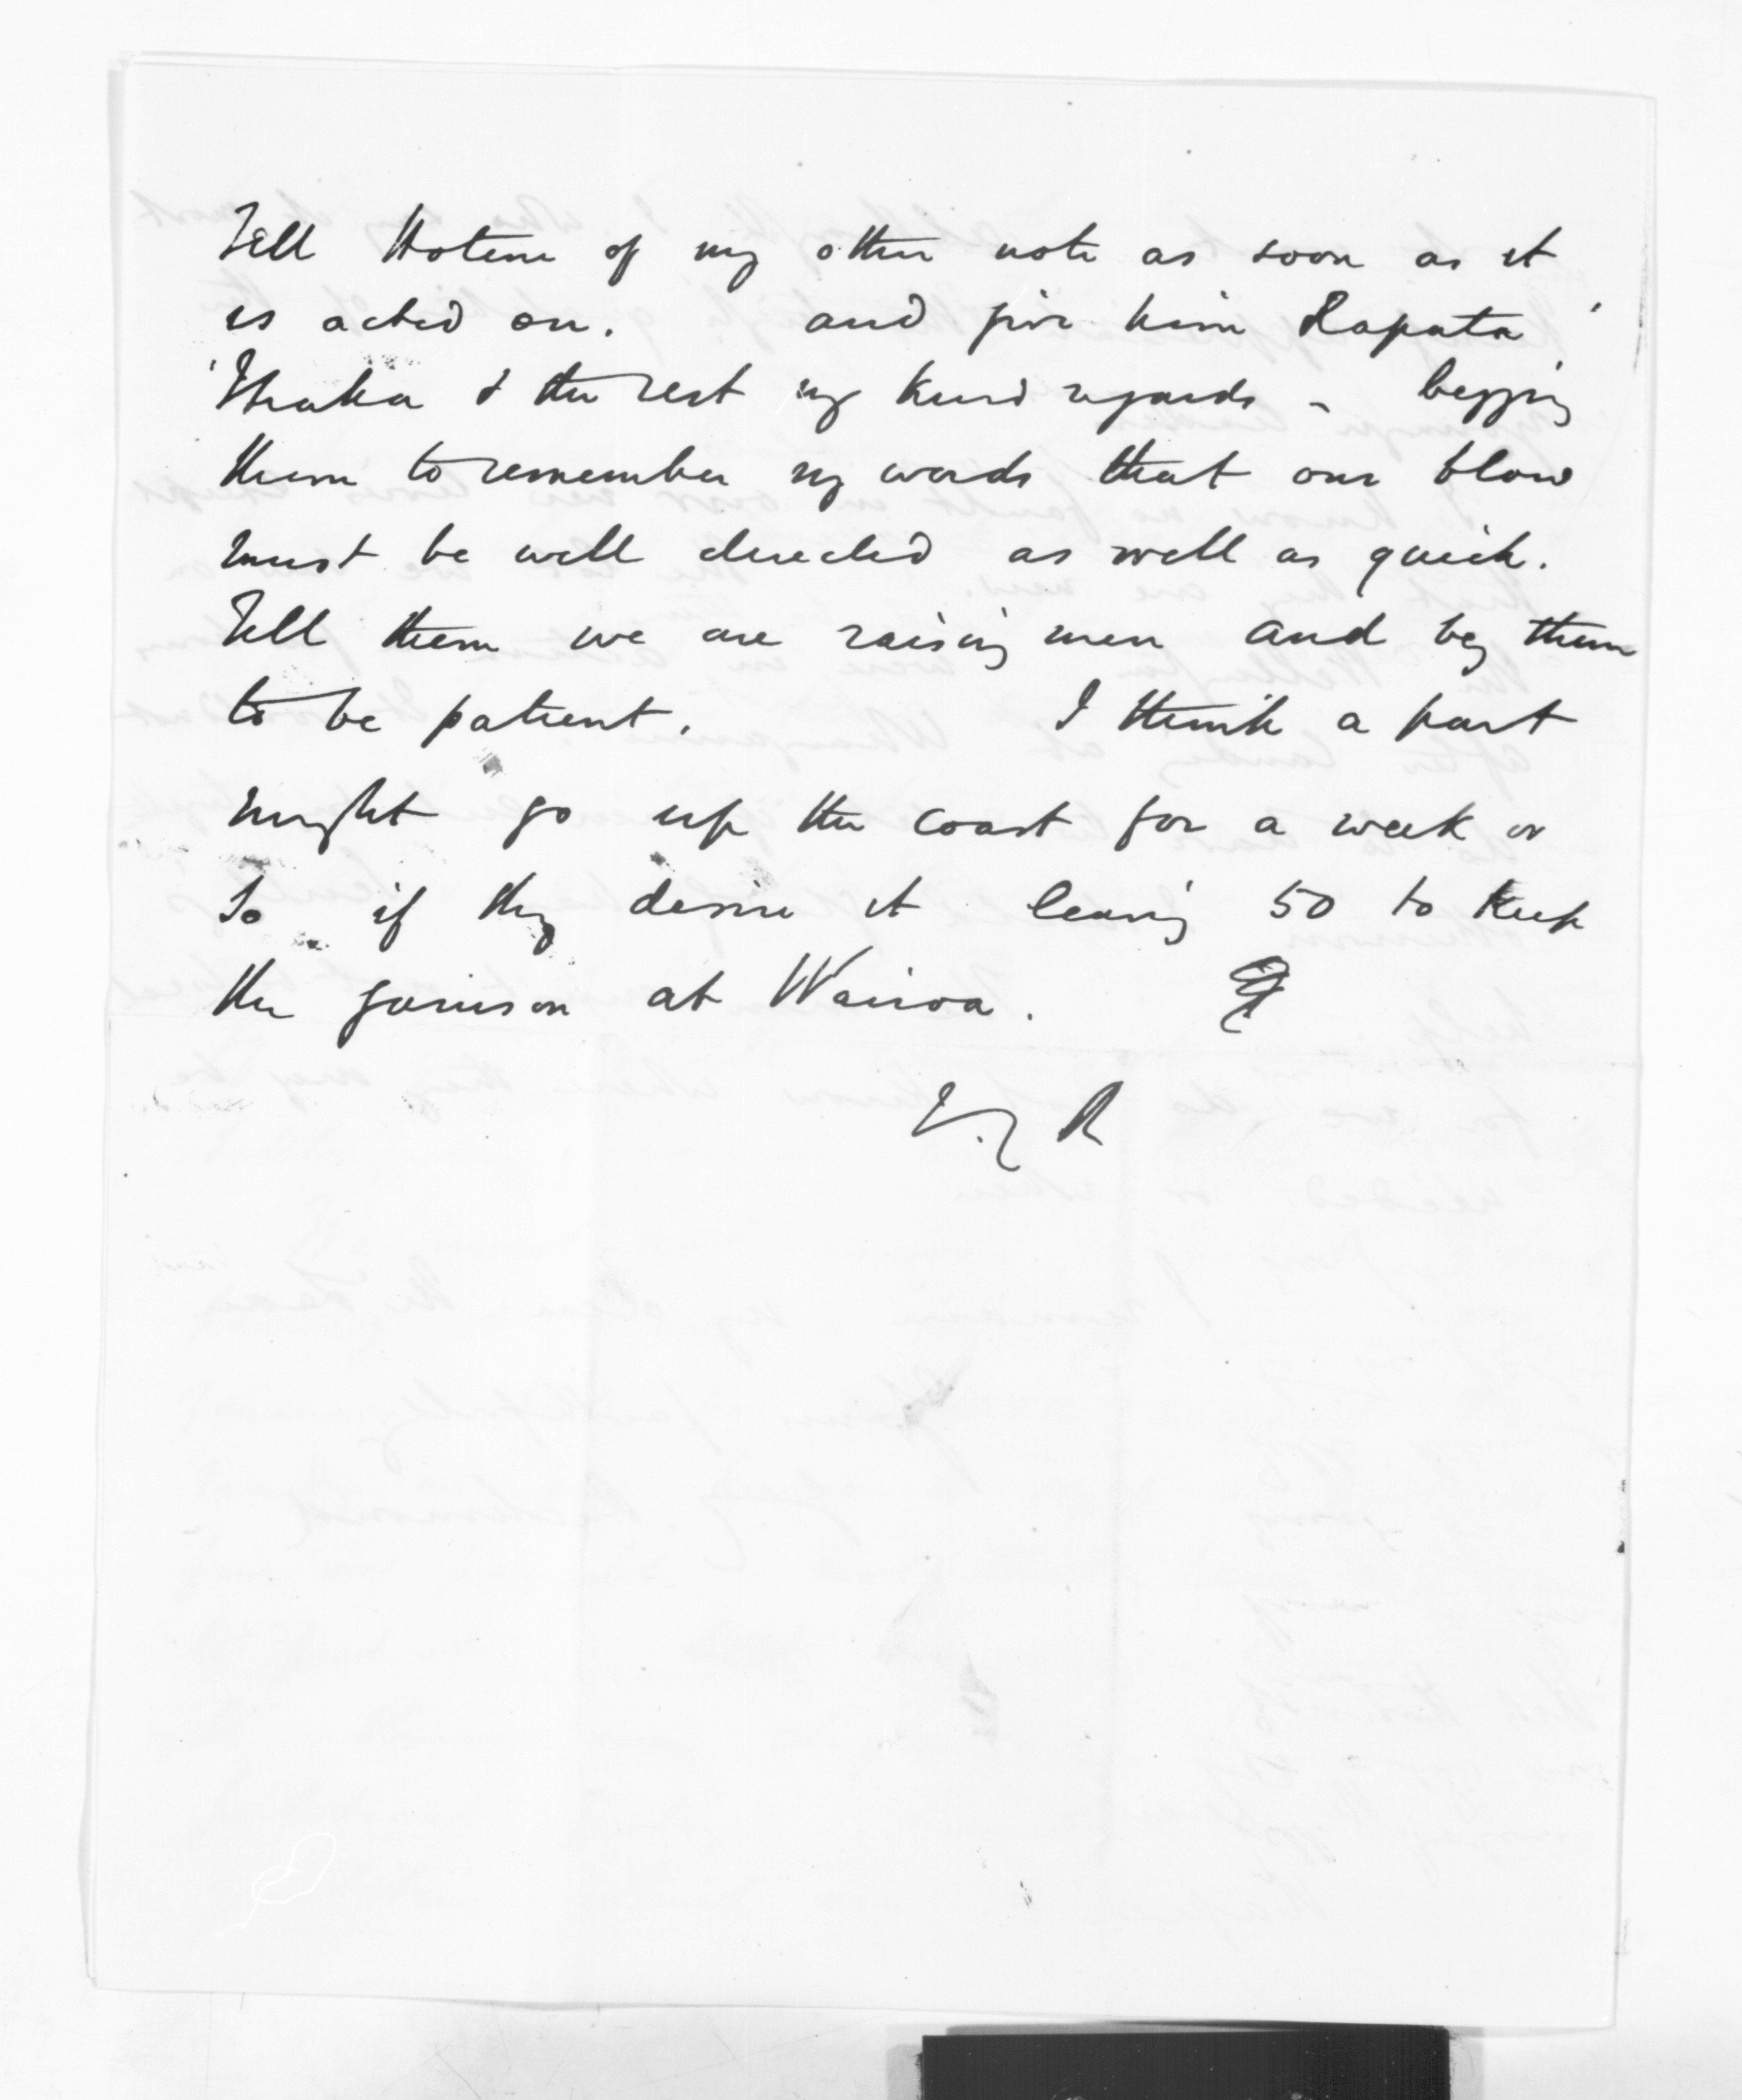 Tell Hotene of my other note as soon as it
is acted on. and give him Rapata
Ihaka & the rest my kind regards - begging
them to remember my words that our blow
must be well directed as well as quick.
Tell them we are raising men and beg them
to be patient. I think a part
might go up the coast for a week or
so if they desire it leaving 50 to keep
the garrison at Wairoa.
R